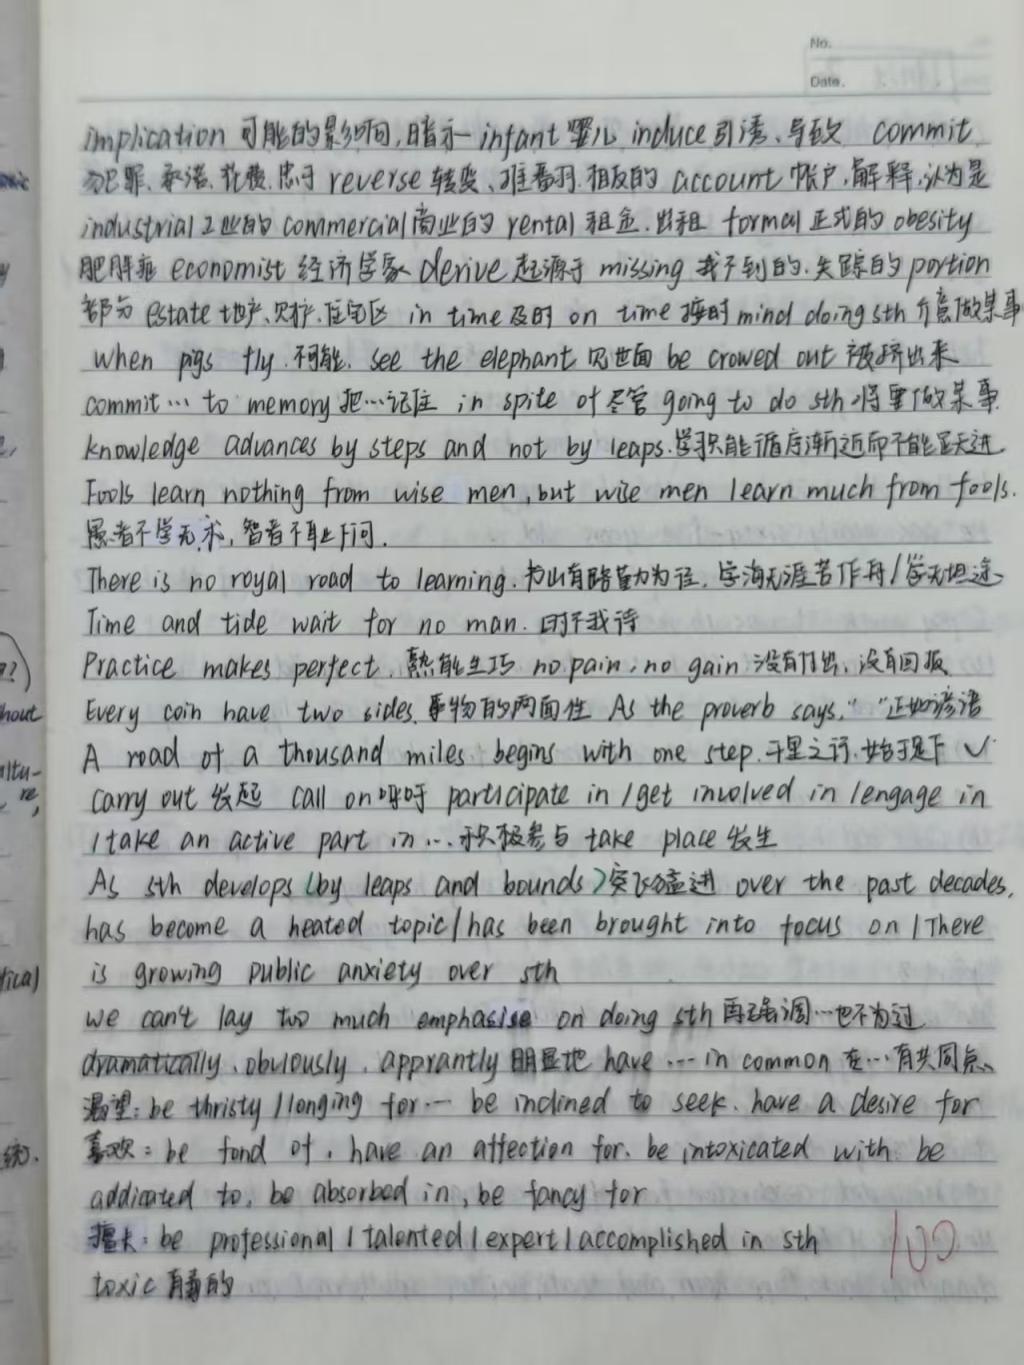 No.
Date.
implication 可能的影响,暗示 infant 婴儿 induce 引诱、导致 commit
犯罪、承诺、花费、忠于 reverse 转变、推翻、相反的 account 帐户,解释,认为是
industrial 工业的 commercial 商业的 rental 租金、出租 formal 正式的 obesity
肥胖症 economist 经济学家 derive 起源于 missing 找不到的、失踪的 portion
部分 estate 地产、财产、住宅区 in time 及时 on time 按时 mind doing sth 介意做某事
when pigs fly 不可能. see the elephant 见世面 be crowed out 被挤出来
commit … to memory 把…记住 in spite of 尽管 going to do sth 将要做某事
knowledge advances by steps and not by leaps. 学识能循序渐近而不能跃进
Fools learn nothing from wise men, but wise men learn much from fools.
愚者不学无术, 智者不耻下问.
There is no royal road to learning. 书山有路勤为径, 学海无涯苦作舟/学无坦途
Time and tide wait for no man. 时不我待
Practice makes perfect. 熟能生巧 no pain, no gain 没有付出、没有回报
Every coin have two sides. 事物的两面性 As the proverb says, “ ”正如谚语
A road of a thousand miles begins with one step. 千里之行、始于足下 ✓
carry out 发起 call on 呼吁 participate in / get involved in / engage in
/ take an active part in … 积极参与 take place 发生
As sth develops (by leaps and bounds) 突飞猛进 over the past decades,
has become a heated topic / has been brought into focus on / There
is growing public anxiety over sth
we can't lay too much emphasise on doing sth 再强调…也不为过
dramatically、obviously、apprantly 明显地 have … in common 在…有共同点、
渴望: be thristy / longing for … be inclined to seek. have a desire for
喜欢: be fond of, have an affection for. be intoxicated with be
addicated to, be absorbed in, be fancy for
擅长: be professional / talented / expert / accomplished in sth
toxic 有毒的
100